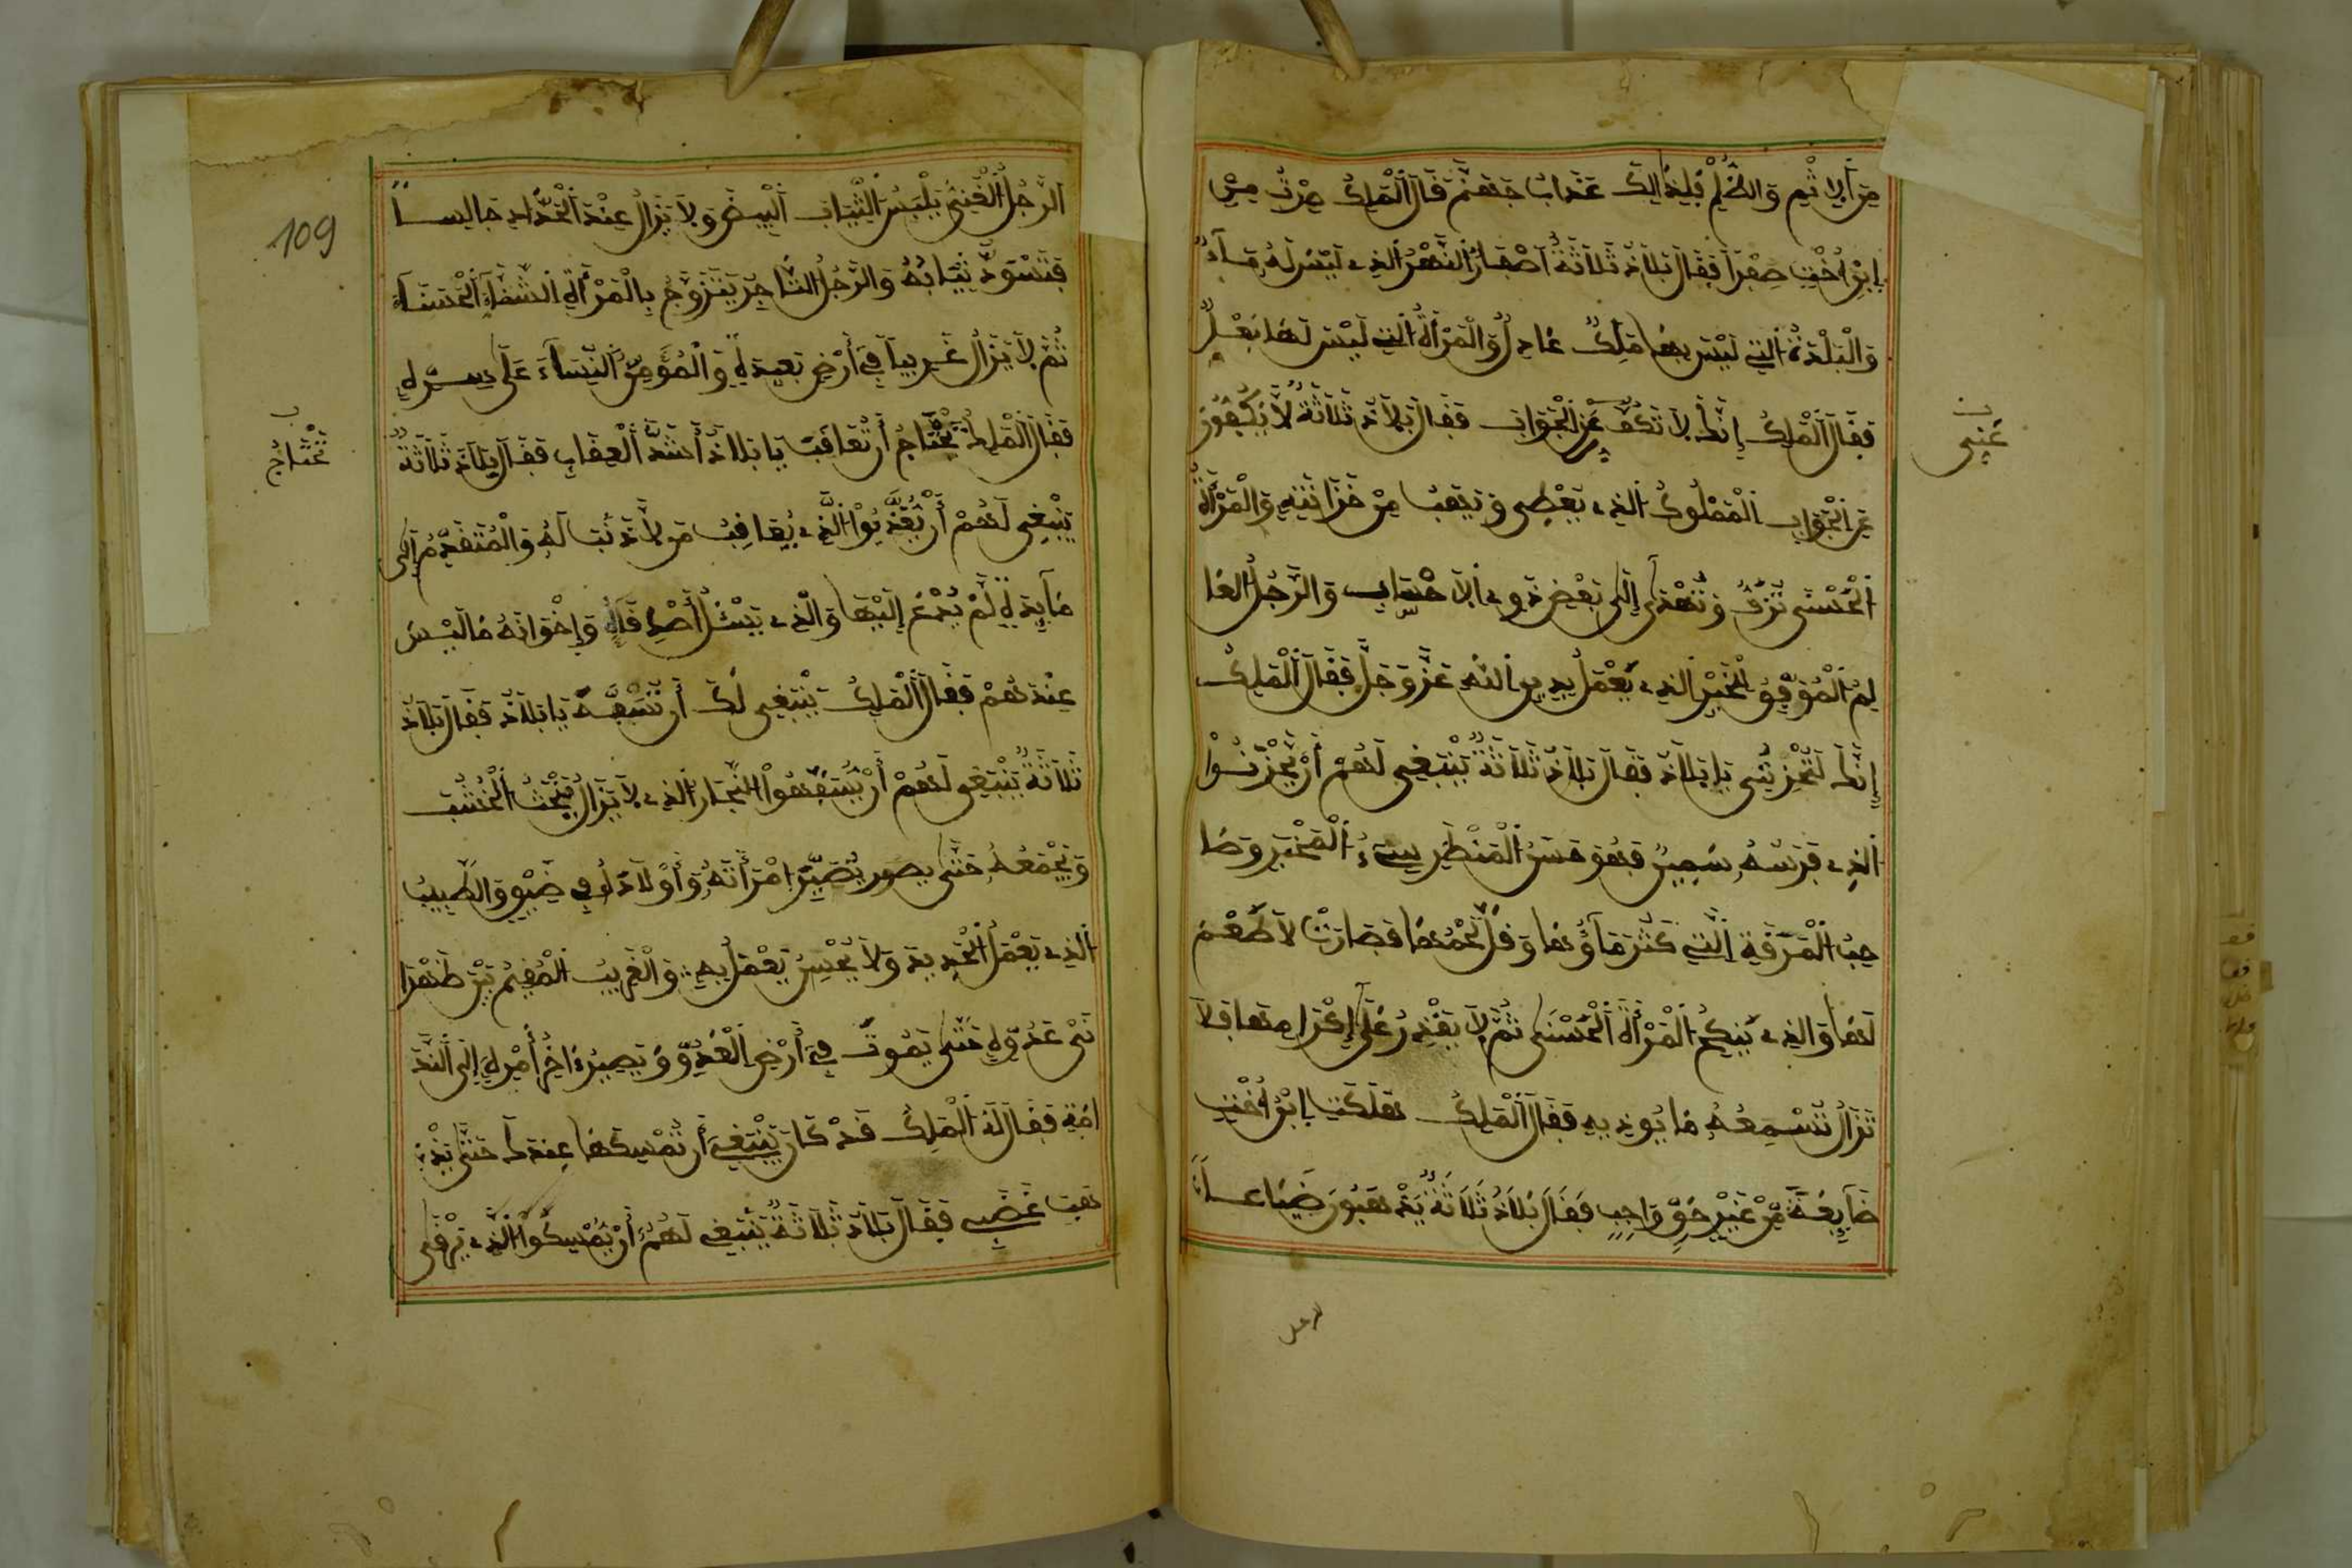 مِنَ الإِثْمِ وَالظُّلْمِ فَلِذَالِكَ عَذَابُ جَهَنَّمَ قَالَ الْمَلِكُ صِرْتُ مِنِ
إبْرَاخْتِ صِفْرًا فَقَالَ بَلَاذُ ثَلَاثَةٌ أَصْفَارُ النَّهْرُ الذِي لَيْسَ لَهُ مَآءٌ
وَالْبَلْدَةُ التِي لَيْسَ بِهَا مَلِكٌ عَادِلٌ وَالْمَرْأَةُ التِي لَيْسَ لَهَا بَعْلٌ
فَقَالَ الْمَلِكُ إِنَّكَ لَا تَكُفُّ عَنِ الْجَوَابِ فَقَالَ بَلَاذُ ثَلَاثَةٌ لَا يَكُفُّونَ
عَنِ الْجَوَابِ الْمَمْلُوكُ الذِي يُعْطِى وَيَهَبُ مِنْ خَزَائِنِهِ وَالْمَرْأَةُ
الْحُسْنَى تُزَفُّ وَتُهْدَى إِلَى بَعْضِ ذَوِي الْأَحْسَابِ وَالرَّجُلُ الْعَا
لِمُ الْمُوَفَّقُ لِلْخَيْرِ الذِي يَعْمَلُ بِدِينِ اللهِ عَزَّ وَجَلَّ فَقَالَ الْمَلِكُ
إِنَّكَ لَتُحْزِنُنِى يَا بَلَاذُ فَقَالَ بَلَاذُ ثَلَاثَةٌ يَنْبَغِى لَهُمْ أَنْ يَحْزَنُوا
الذِي فَرَسُهُ سَمِينٌ فَهُوَ حَسَنُ الْمَنْظَرِ سَيِّءُ الْمَخْبَرِ وَصَا
حِبُ الْمَرَقَةِ التِي كَثُرَ مَاؤُهَا وَقَلَّ لَحْمُهَا فَصَارَتْ لَا طَعْمَ
لَهَا وَالذِي يَنْكِحُ الْمَرْأَةَ الْحُسْنَى ثُمَّ لَا يَقْدِرُ عَلَى إِكْرَامِهَا فَلَا
تَزَالُ تُسْمِعُهُ مَا يُوذِيهِ فَقَالَ الْمَلِكُ هَلَكَتِ إِبْرَاخْتِ
ضَائِعَةً مِّنْ غَيْرِ حَقٍّ وَاجِبٍ فَقَالَ بَلَاذُ ثَلَاثَةٌ يَذْهَبُونَ ضَيَاعًا
عَنِى
الرجل
109
الرَّجُلُ الْغَنِيُّ يَلْبَسُ الثِّيَابَ الْبِيضَ وَلَا يَزَالُ عِنْدَ الْحَدَّادِ جَالِسًا
فَتَسْوَدُّ ثِيَابُهُ وَالرَّجُلُ التَّاجِرُ يَتَزَوَّجُ بِالْمَرْأَةِ الْحَسْنَآءِ
ثُمَّ لَا يَزَالُ غَرِيبًا فِي أَرْضٍ بَعِيدَةٍ
فَقَالَ الْمَلِكُ تَحْتَاجُ أَنْ تُعَاقَبَ يَا بَلَاذُ أَشَدَّ الْعِقَابِ فَقَالَ بَلَاذُ ثَلَاثَةٌ
يَنْبَغِى لَهُمْ أَنْ يُعَذَّبُوا الَّذِي يُعَاقِبُ مَن لَّا ذَنْبَ لَهُ وَالْمُتَقَدِّمُ إِلَى
مَآئِدَةٍ لَمْ يُدْعَ إِلَيْهَا وَالَّذِي يَسْئَلُ أَصْدِقَآءَهُ وَإِخْوَانَهُ مَا لَيْسَ
عِنْدَهُمْ فَقَالَ الْمَلِكُ يَنْبَغِى لَكَ أَنْ تُسَفَّهَ يَا بَلَاذُ فَقَالَ بَلَاذُ
ثَلَاثَةٌ يَنْبَغِى لَهُمْ أَنْ يُسَفَّهُوا النَّجَّارُ الذِي لَا يَزَالُ يَنْحَتُ الْخَشَبَ
وَيَجْمَعُهُ حَتَّى يُصَيِّرَ امْرَأَتَهُ وَأَوْلَادَهُ فِي ضِيقٍ وَالطَّبِيبُ
الذِي يَعْمَلُ بِالْحَدِيدِ وَلَا يُحْسِنُ يَعْمَلُ بِهِ وَالْغَرِيبُ الْمُقِيمُ بَيْنَ ظَهْرَا
نَىْ عَدُوِّهِ حَتَّى يَمُوتَ فِي أَرْضِ الْعَدُوِّ وَيَصِيرُ ءَاخِرُ أَمْرِهِ إِلَى النَّدَ
امَةِ فَقَالَ لَهُ الْمَلِكُ قَدْ كَانَ يَنْبَغِي أَنْ تُمْسِكَهَا عِنْدَكَ حَتَّى يَذْ
هَبَ غَضَبِي فَقَالَ بَلَاذُ ثَلَاثَةٌ يَنْبَغِي لَهُمْ أَنْ يُمْسِكُوا الَّذِي يَرْقَى
تَحْتَاجُ